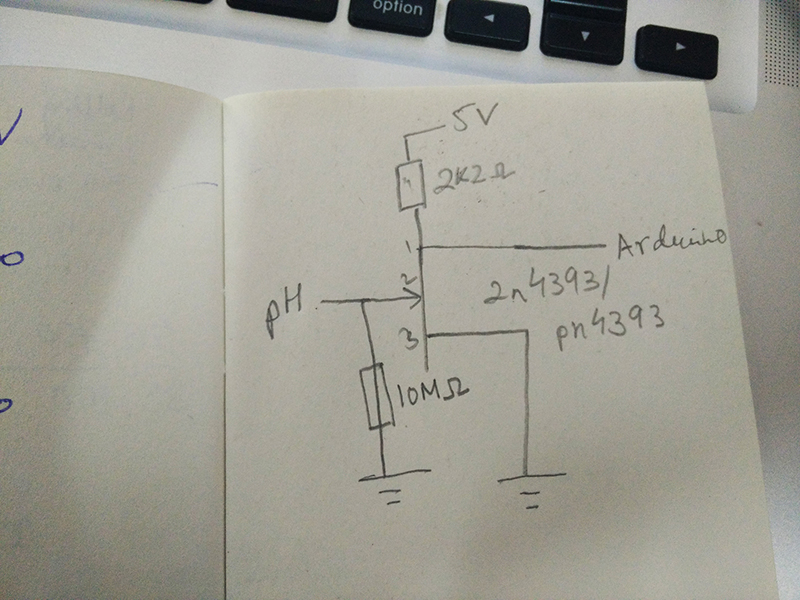 option
5V
2K2Ω
1
Arduino
2
2n4393/
pH
pn4393
3
10MΩ